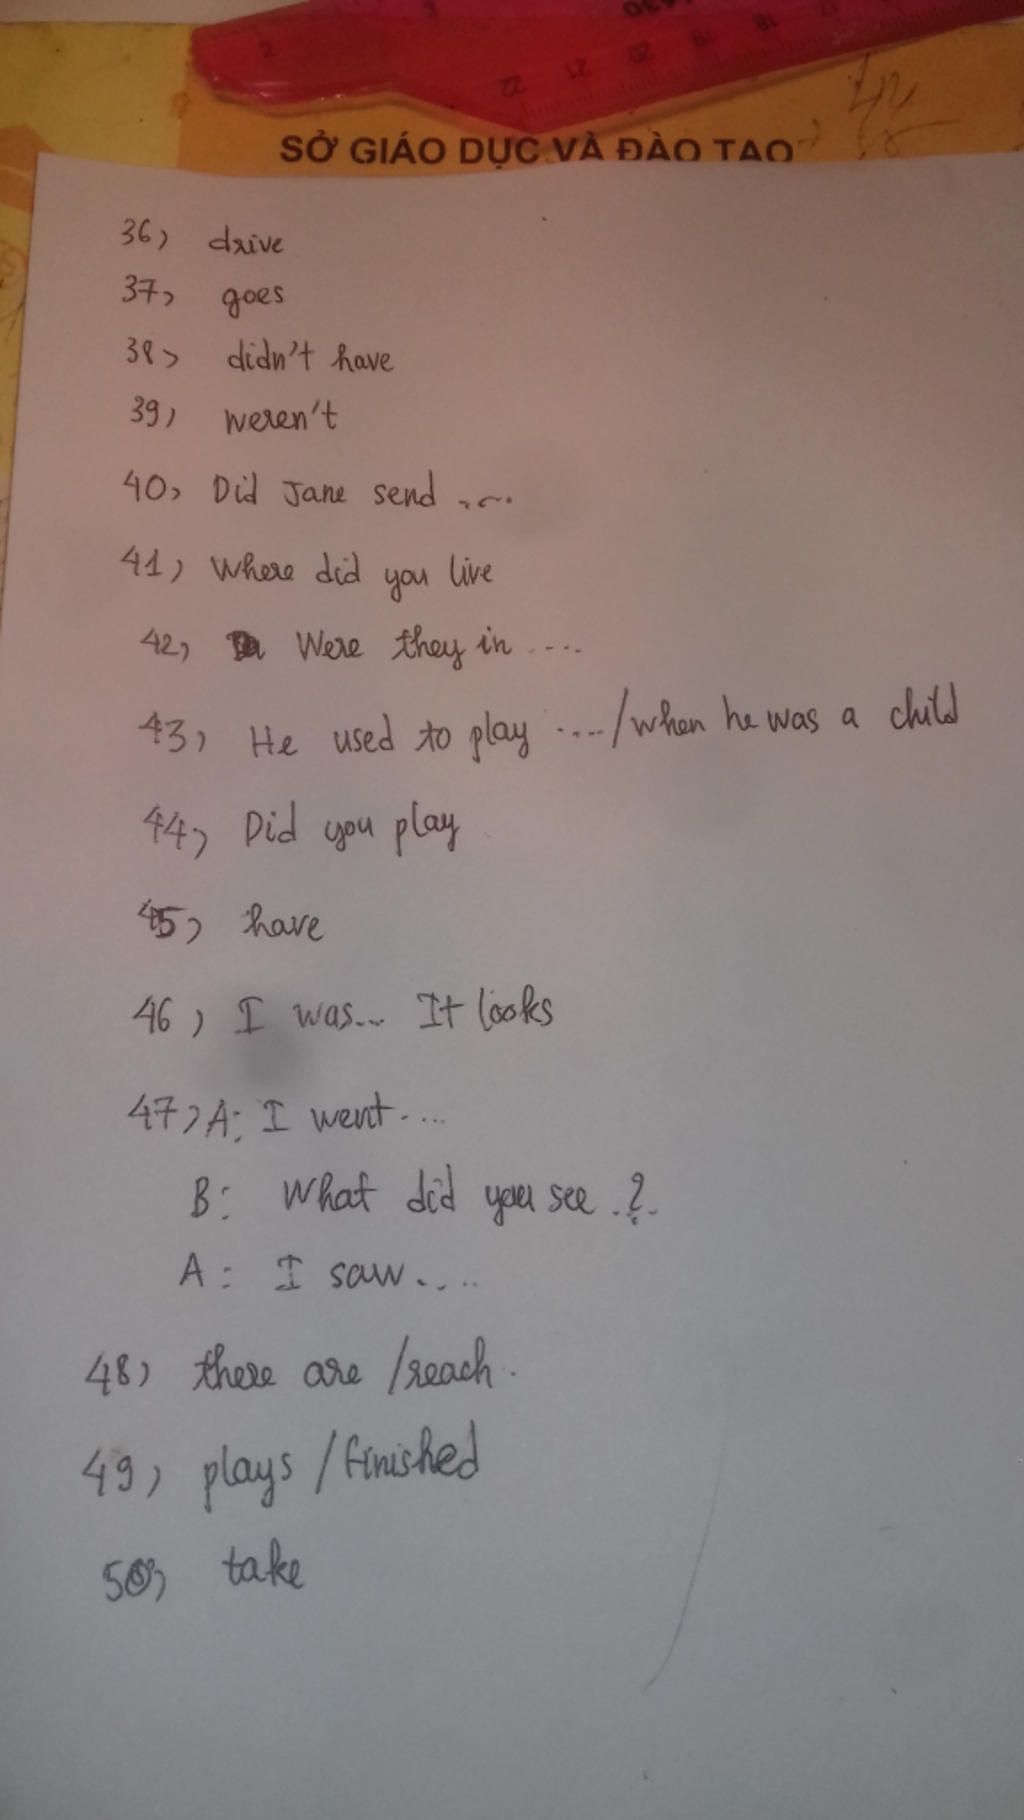 22 21 20 19 18 17
SỞ GIÁO DỤC VÀ ĐÀO TẠO
36) drive
37) goes
38) didn't have
39) weren't
40) Did Jane send ....
41) Where did you live
42) Were they in ....
43) He used to play ..../when he was a child
44) Did you play
45) have
46) I was... It looks
47) A: I went....
B: What did you see ..?.
A: I saw....
48) there are /reach.
49) plays /finished
50) take